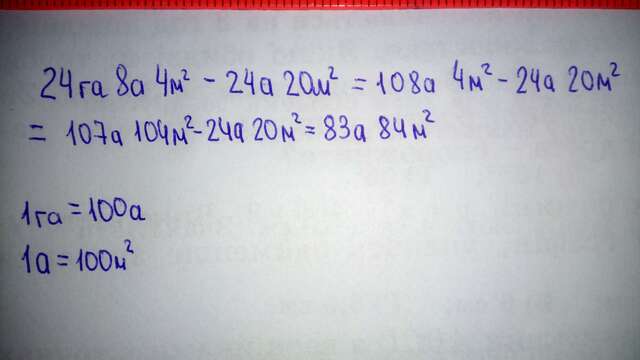 24га 8а 4м² - 24а 20м² = 108а 4м² - 24а 20м²
= 107а 104м² - 24а 20м² = 83а 84м²
1га = 100а
1а = 100м²